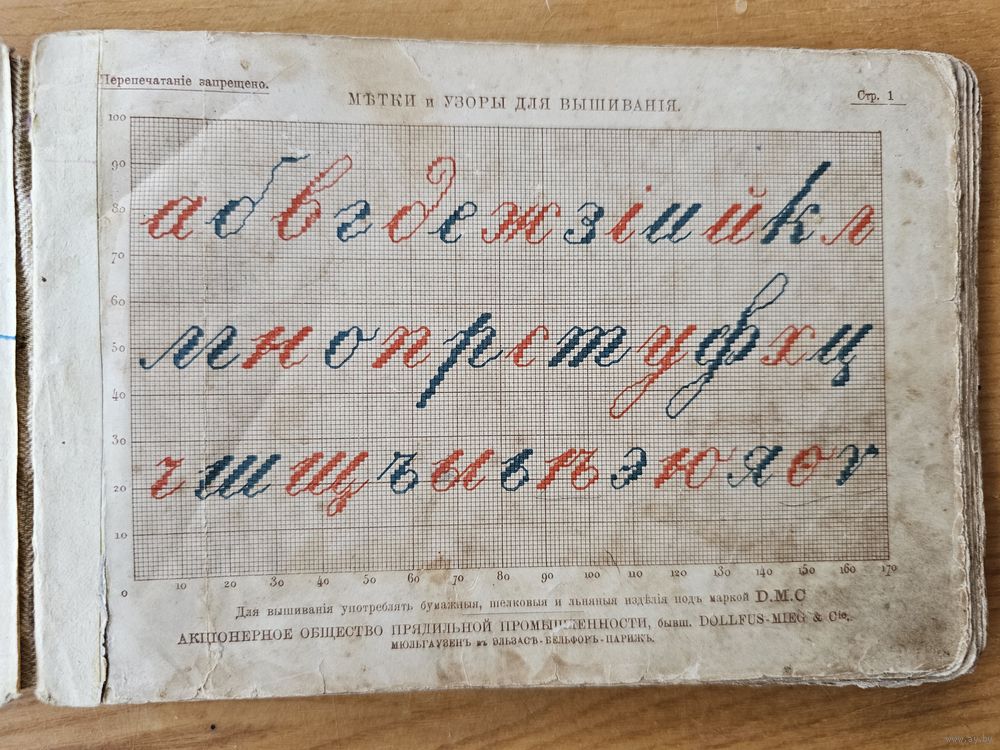 Перепечатаніе запрещено.
МѢТКИ и УЗОРЫ ДЛЯ ВЫШИВАНІЯ.
Стр. 1
100
90
80
70
60
50
40
30
20
10
0
а б в г д е ж з і и й к л
м н о п р с т у ф х ц
ч ш щ ъ ы ь ѣ э ю я ѳ ѵ
10 20 30 40 50 60 70 80 90 100 110 120 130 140 150 160 170
Для вышиванія употреблять бумажныя, шелковыя и льняныя издѣлія подъ маркой D.M.C
АКЦІОНЕРНОЕ ОБЩЕСТВО ПРЯДИЛЬНОЙ ПРОМЫШЛЕННОСТИ, бывш. DOLLFUS-MIEG & Cie,
МЮЛЬГАУЗЕНЪ въ ЭЛЬЗАСѢ-БЕЛЬФОРЪ-ПАРИЖЪ.
www.ay.by